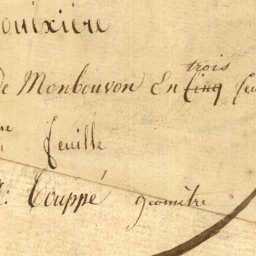 ouixière
de Monbouvon En cinq trois feu
re feuille
r: Couppé géomètre